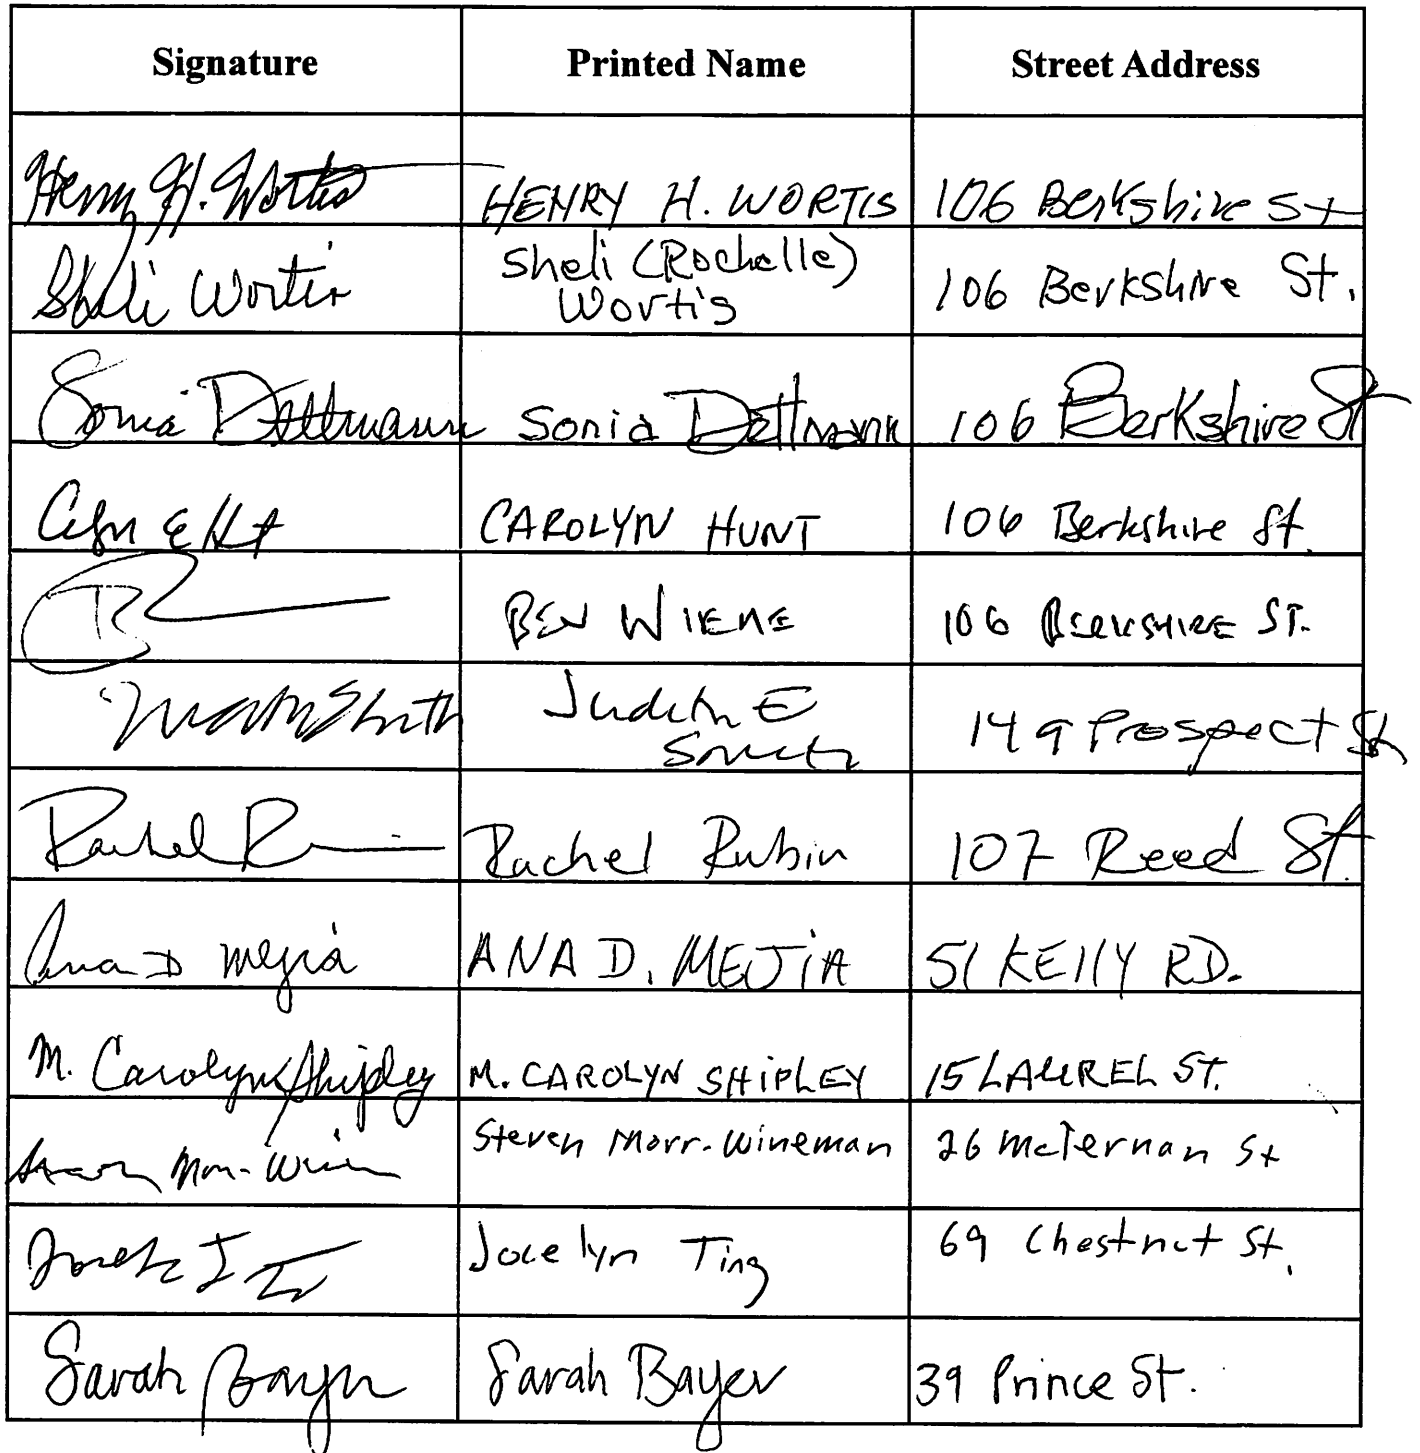 Signature Printed Name Street Address
Henry H. Wortis HENRY H. WORTIS 106 Berkshire St
Sheli Wortis Sheli (Rochelle) 106 Berkshire St.
Wortis
Sonia Dettmann Sonia Dettmann 106 Berkshire St
CAROLYN HUNT 106 Berkshire St.
BEN 106 BERKSHIRE ST.
Judith E 149 Prospect St
Smith
Rachel Rubin 107 Reed St.
Ana D Mejia ANA D. MEJIA 51 KELLY RD.
M. Carolyn Shipley M. CAROLYN SHIPLEY 15 LAUREL ST.
Steven Morr-Wineman 26 McTernan St
Jocelyn Ting 69 Chestnut St.
Sarah Bayer Sarah Bayer 39 Prince St.